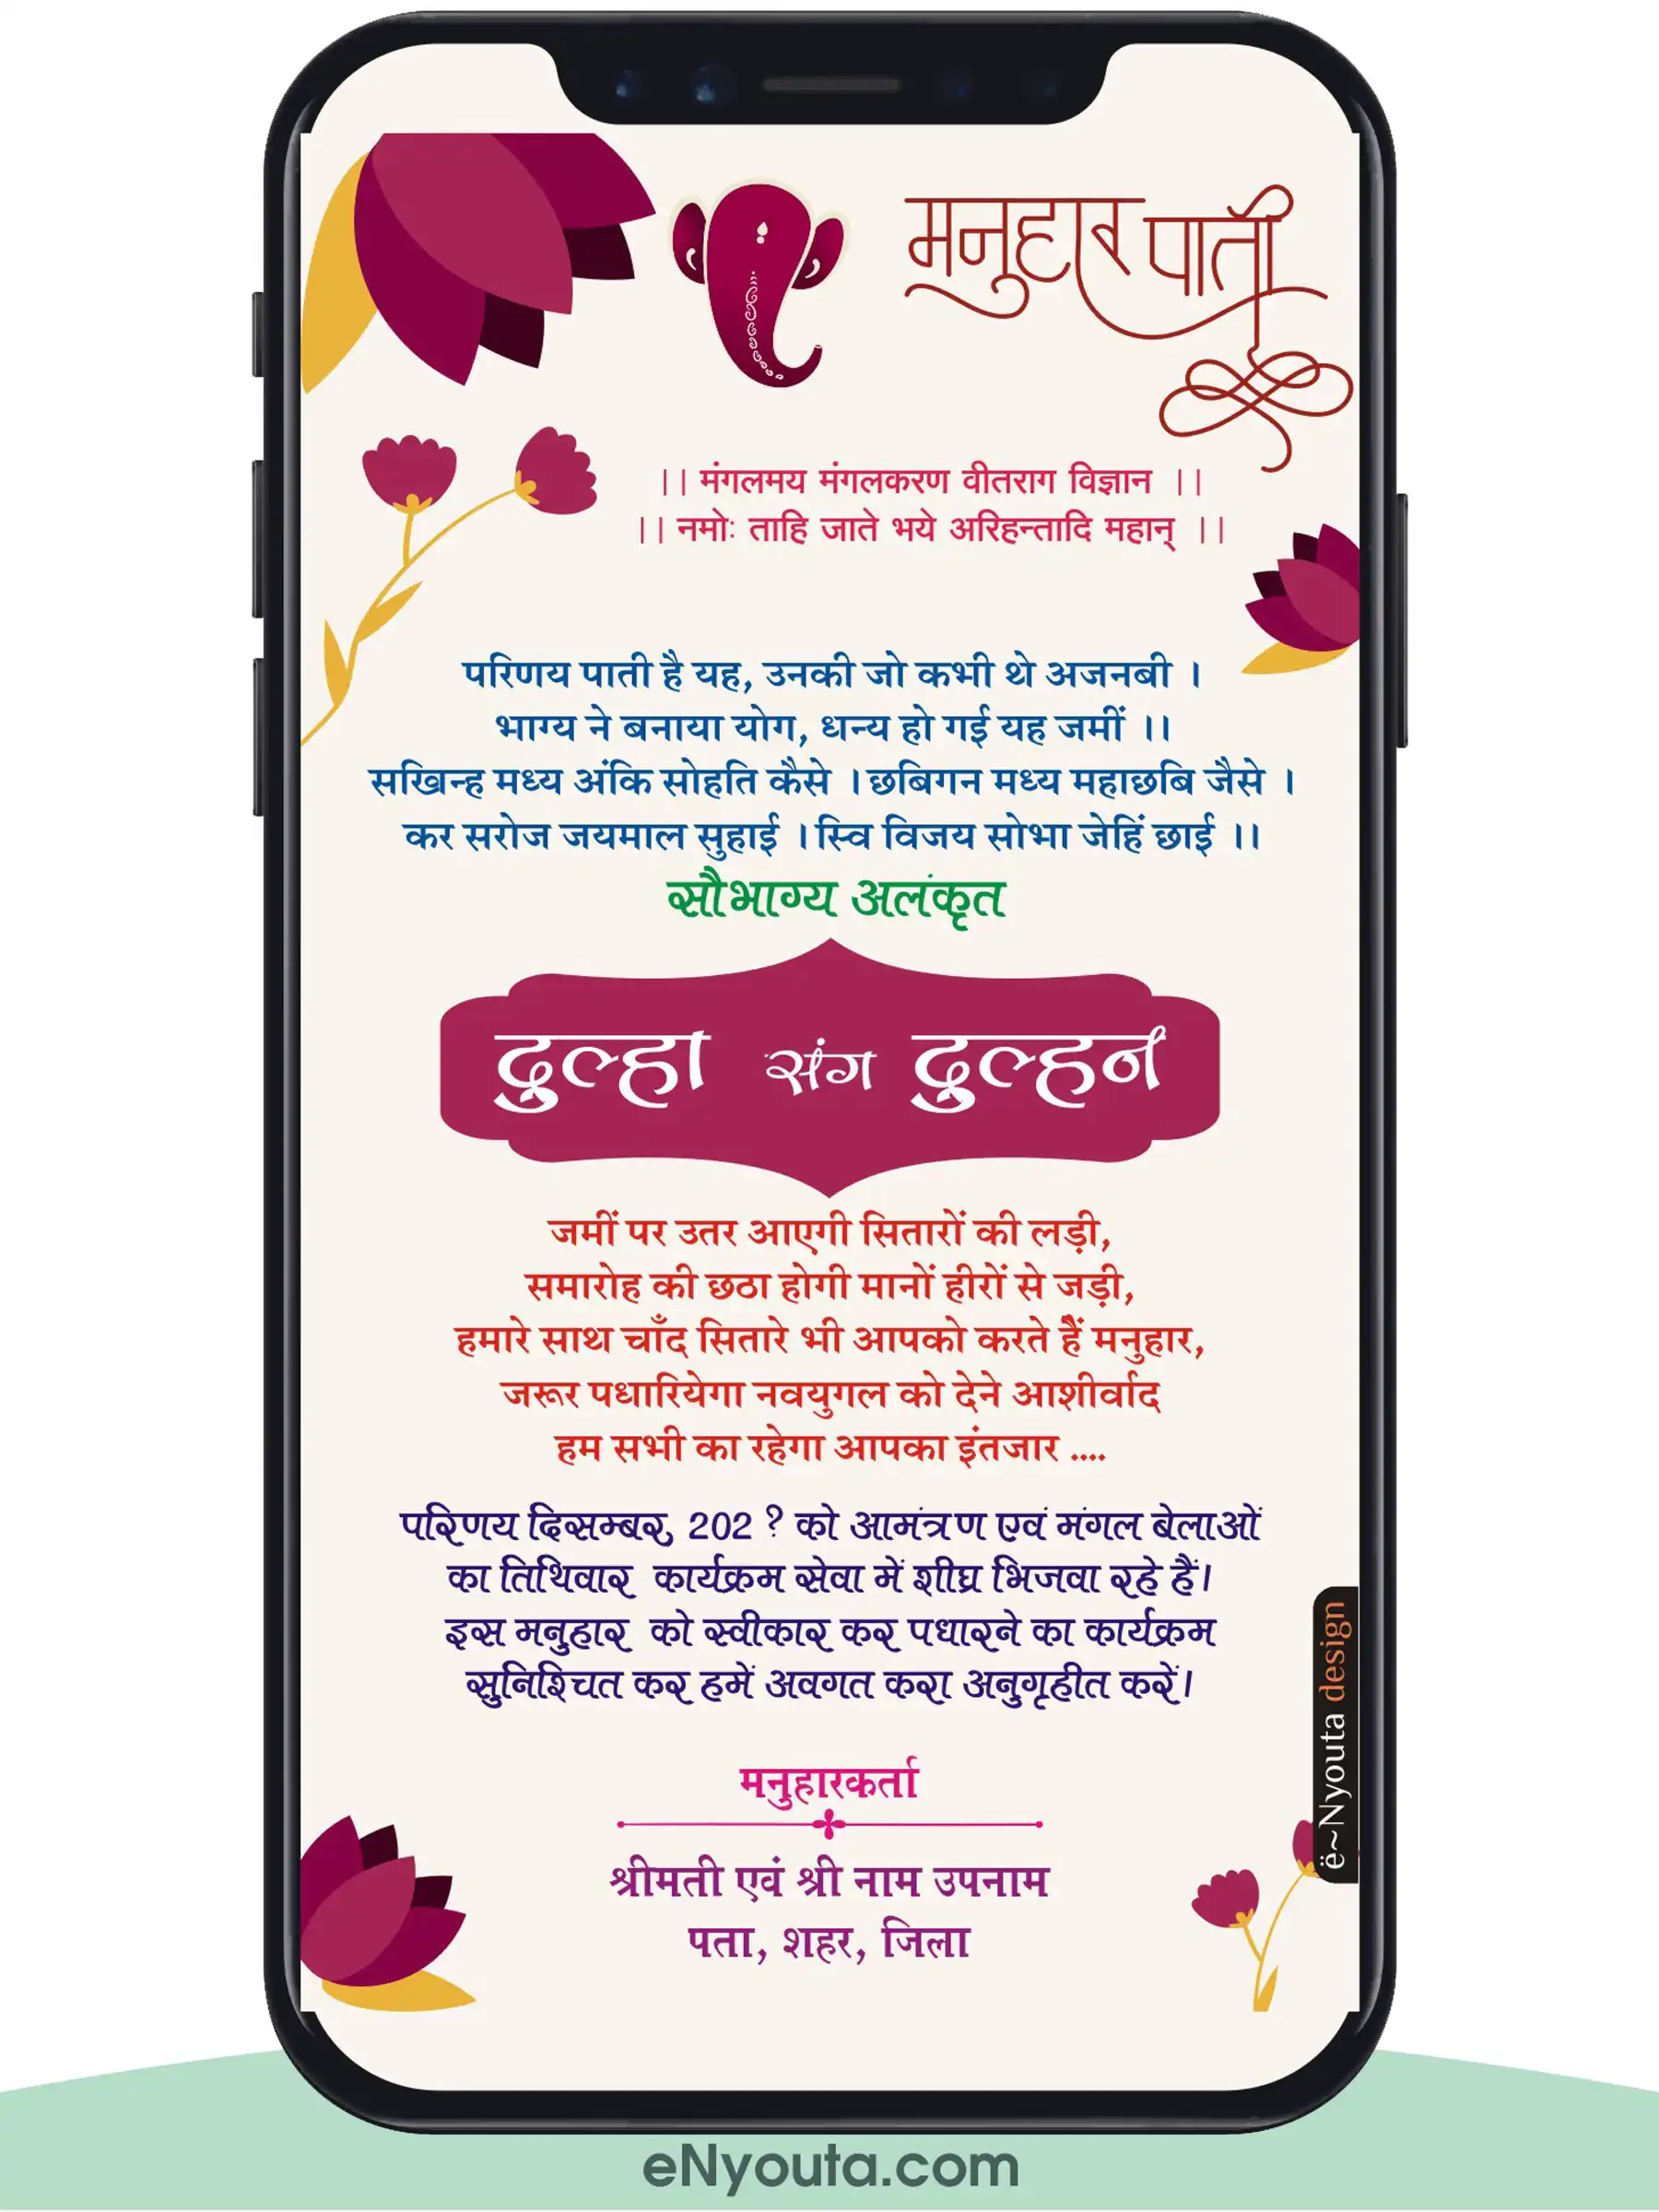 मनुहार पाती
|| मंगलमय मंगलकरण वीतराग विज्ञान ||
|| नमोः ताहि जाते भये अरिहन्तादि महान् ||
परिणय पाती है यह, उनकी जो कभी थे अजनबी ।
भाग्य ने बनाया योग, धन्य हो गई यह जमीं ।।
सखिन्ह मध्य अंकि सोहति कैसे । छबिगन मध्य महाछबि जैसे ।
कर सरोज जयमाल सुहाई । स्वि विजय सोभा जेहिं छाई ।।
सौभाग्य अलंकृत
दुल्हा संग दुल्हन
जमीं पर उतर आएगी सितारों की लड़ी,
समारोह की छठा होगी मानों हीरों से जड़ी,
हमारे साथ चाँद सितारे भी आपको करते हैं मनुहार,
जरूर पधारियेगा नवयुगल को देने आशीर्वाद
हम सभी का रहेगा आपका इंतजार ....
परिणय दिसम्बर, 202 ? को आमंत्रण एवं मंगल बेलाओं
का तिथिवार कार्यक्रम सेवा में शीघ्र भिजवा रहे हैं।
इस मनुहार को स्वीकार कर पधारने का कार्यक्रम
सुनिश्चित कर हमें अवगत करा अनुगृहीत करें।
मनुहारकर्ता
श्रीमती एवं श्री नाम उपनाम
पता, शहर, जिला
ë~Nyouta design
eNyouta.com